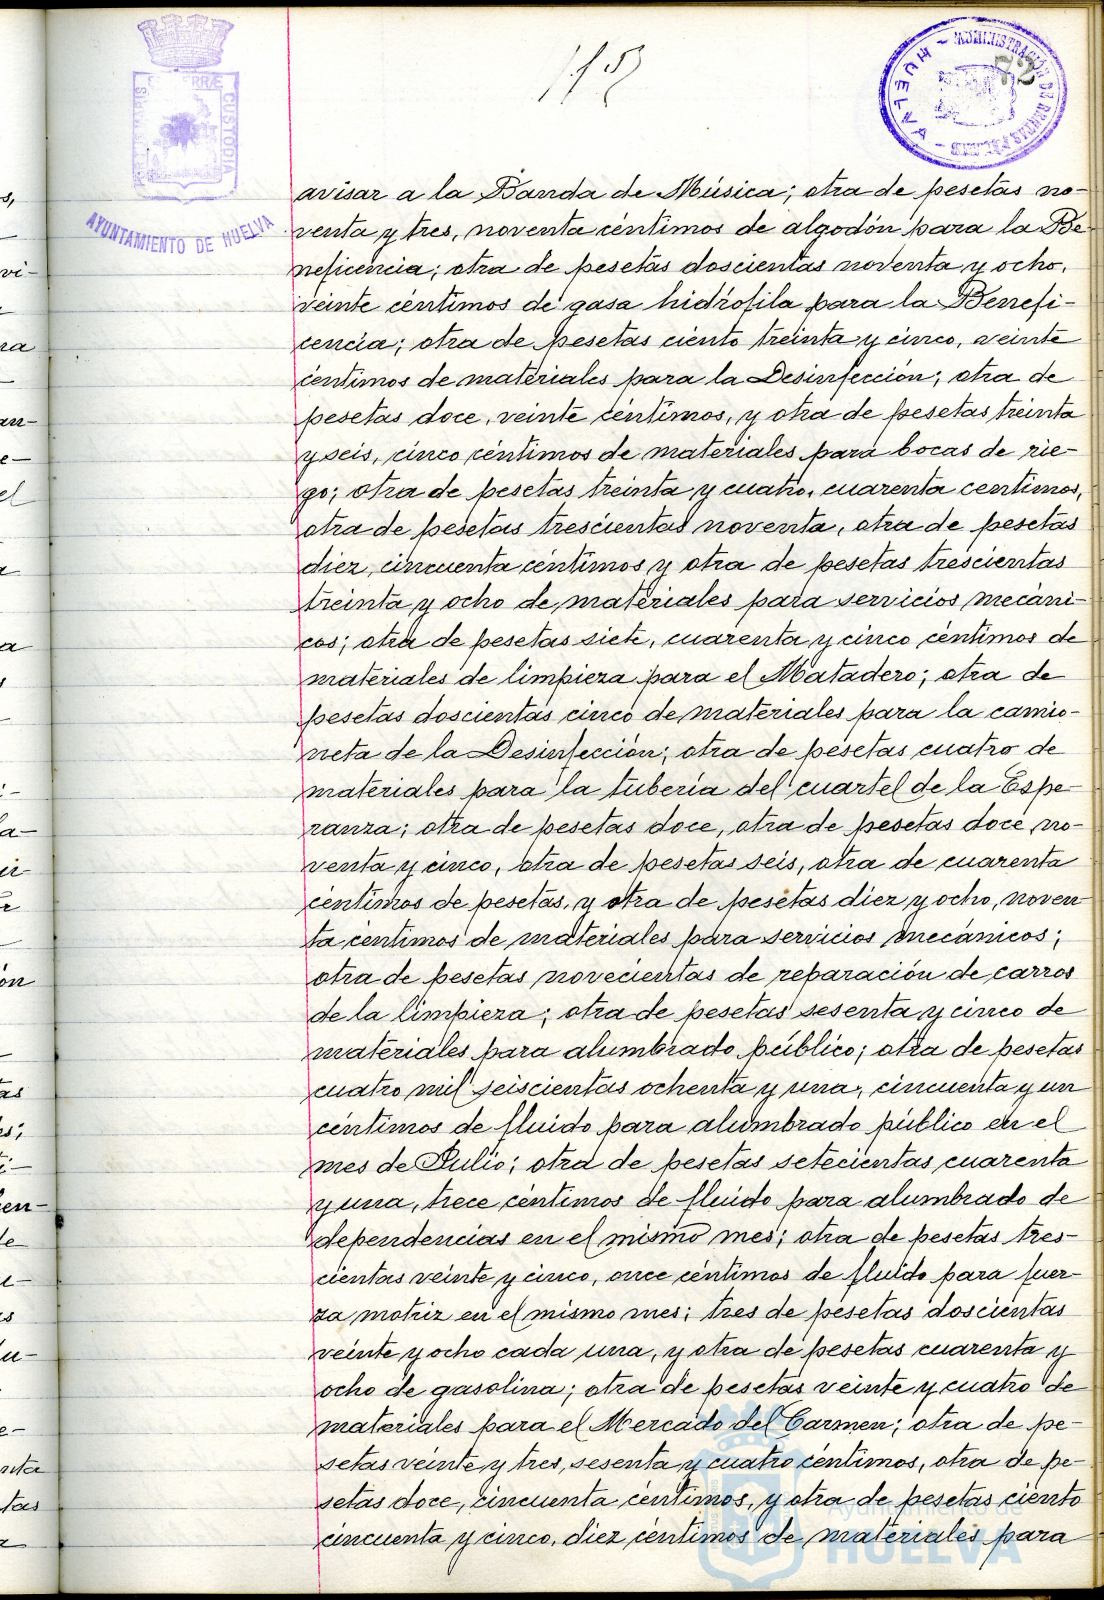 115
72
HUELVA - ADMINISTRACIÓN DE RENTAS
CUSTODI
AYUNTAMIENTO DE HUELVA
avisar a la Banda de Música; otra de pesetas no-
venta y tres, noventa céntimos de algodón para la Be-
neficencia; otra de pesetas doscientas noventa y ocho,
veinte céntimos de gasa hidrófila para la Benefi-
cencia; otra de pesetas ciento treinta y cinco, veinte
céntimos de materiales para la Desinfección; otra de
pesetas doce, veinte céntimos, y otra de pesetas treinta
y seis, cinco céntimos de materiales para bocas de rie-
go; otra de pesetas treinta y cuatro, cuarenta centimos,
otra de pesetas trescientas noventa, otra de pesetas
diez, cincuenta céntimos y otra de pesetas trescientas
treinta y ocho de materiales para servicios mecáni-
cos; otra de pesetas siete, cuarenta y cinco céntimos de
materiales de limpieza para el Matadero; otra de
pesetas doscientas cinco de materiales para la camio-
neta de la Desinfección; otra de pesetas cuatro de
materiales para la tubería del cuartel de la Espe-
ranza; otra de pesetas doce, otra de pesetas doce, no-
venta y cinco, otra de pesetas seis, otra de cuarenta
céntimos de pesetas, y otra de pesetas diez y ocho, noven
ta céntimos de materiales para servicios mecánicos;
otra de pesetas novecientas de reparación de carros
de la limpieza; otra de pesetas sesenta y cinco de
materiales para alumbrado público; otra de pesetas
cuatro mil seiscientas ochenta y una, cincuenta y un
céntimos de fluido para alumbrado público en el
mes de Julio; otra de pesetas setecientas cuarenta
y una, trece céntimos de fluído para alumbrado de
dependencias en el mismo mes; otra de pesetas tres-
cientas veinte y cinco, once céntimos de fluído para fuer-
za motriz en el mismo mes; tres de pesetas doscientas
veinte y ocho cada una, y otra de pesetas cuarenta y
ocho de gasolina; otra de pesetas veinte y cuatro de
materiales para el Mercado del Carmen; otra de pe-
setas veinte y tres, sesenta y cuatro céntimos, otra de pe-
setas doce, cincuenta céntimos, y otra de pesetas ciento
cincuenta y cinco, diez céntimos de materiales para
Ayuntamiento de
HUELVA